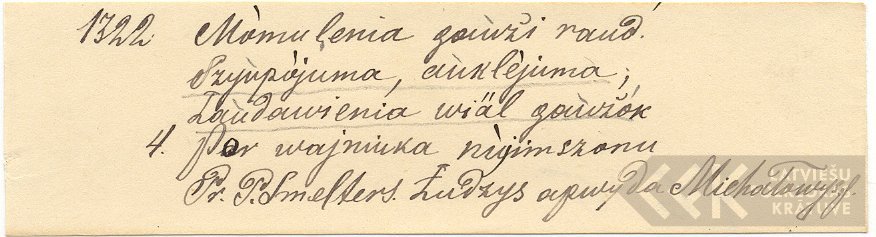 1322 Mòmuļenia gaùži raud.
Szyùpòjuma, aùklèjuma;
Ļaùdawienia wiäl gaùžók
4. Par wajniuka nijimszonu
Pr. P. Smelters. Ļudzys apwyda Michałowys
LATVIEŠU
KRĀTUVE